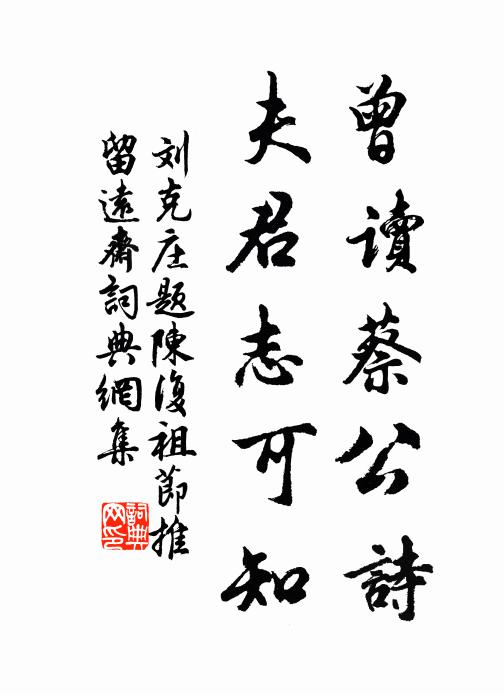 曾讀蔡公詩
夫君志可知
刘克庄题陳復祖節推
留遠齋詞典網集
詞典
网印